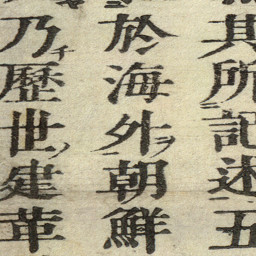 其所記述五
於海外ヲ朝鮮
乃チ歷世ノ建革